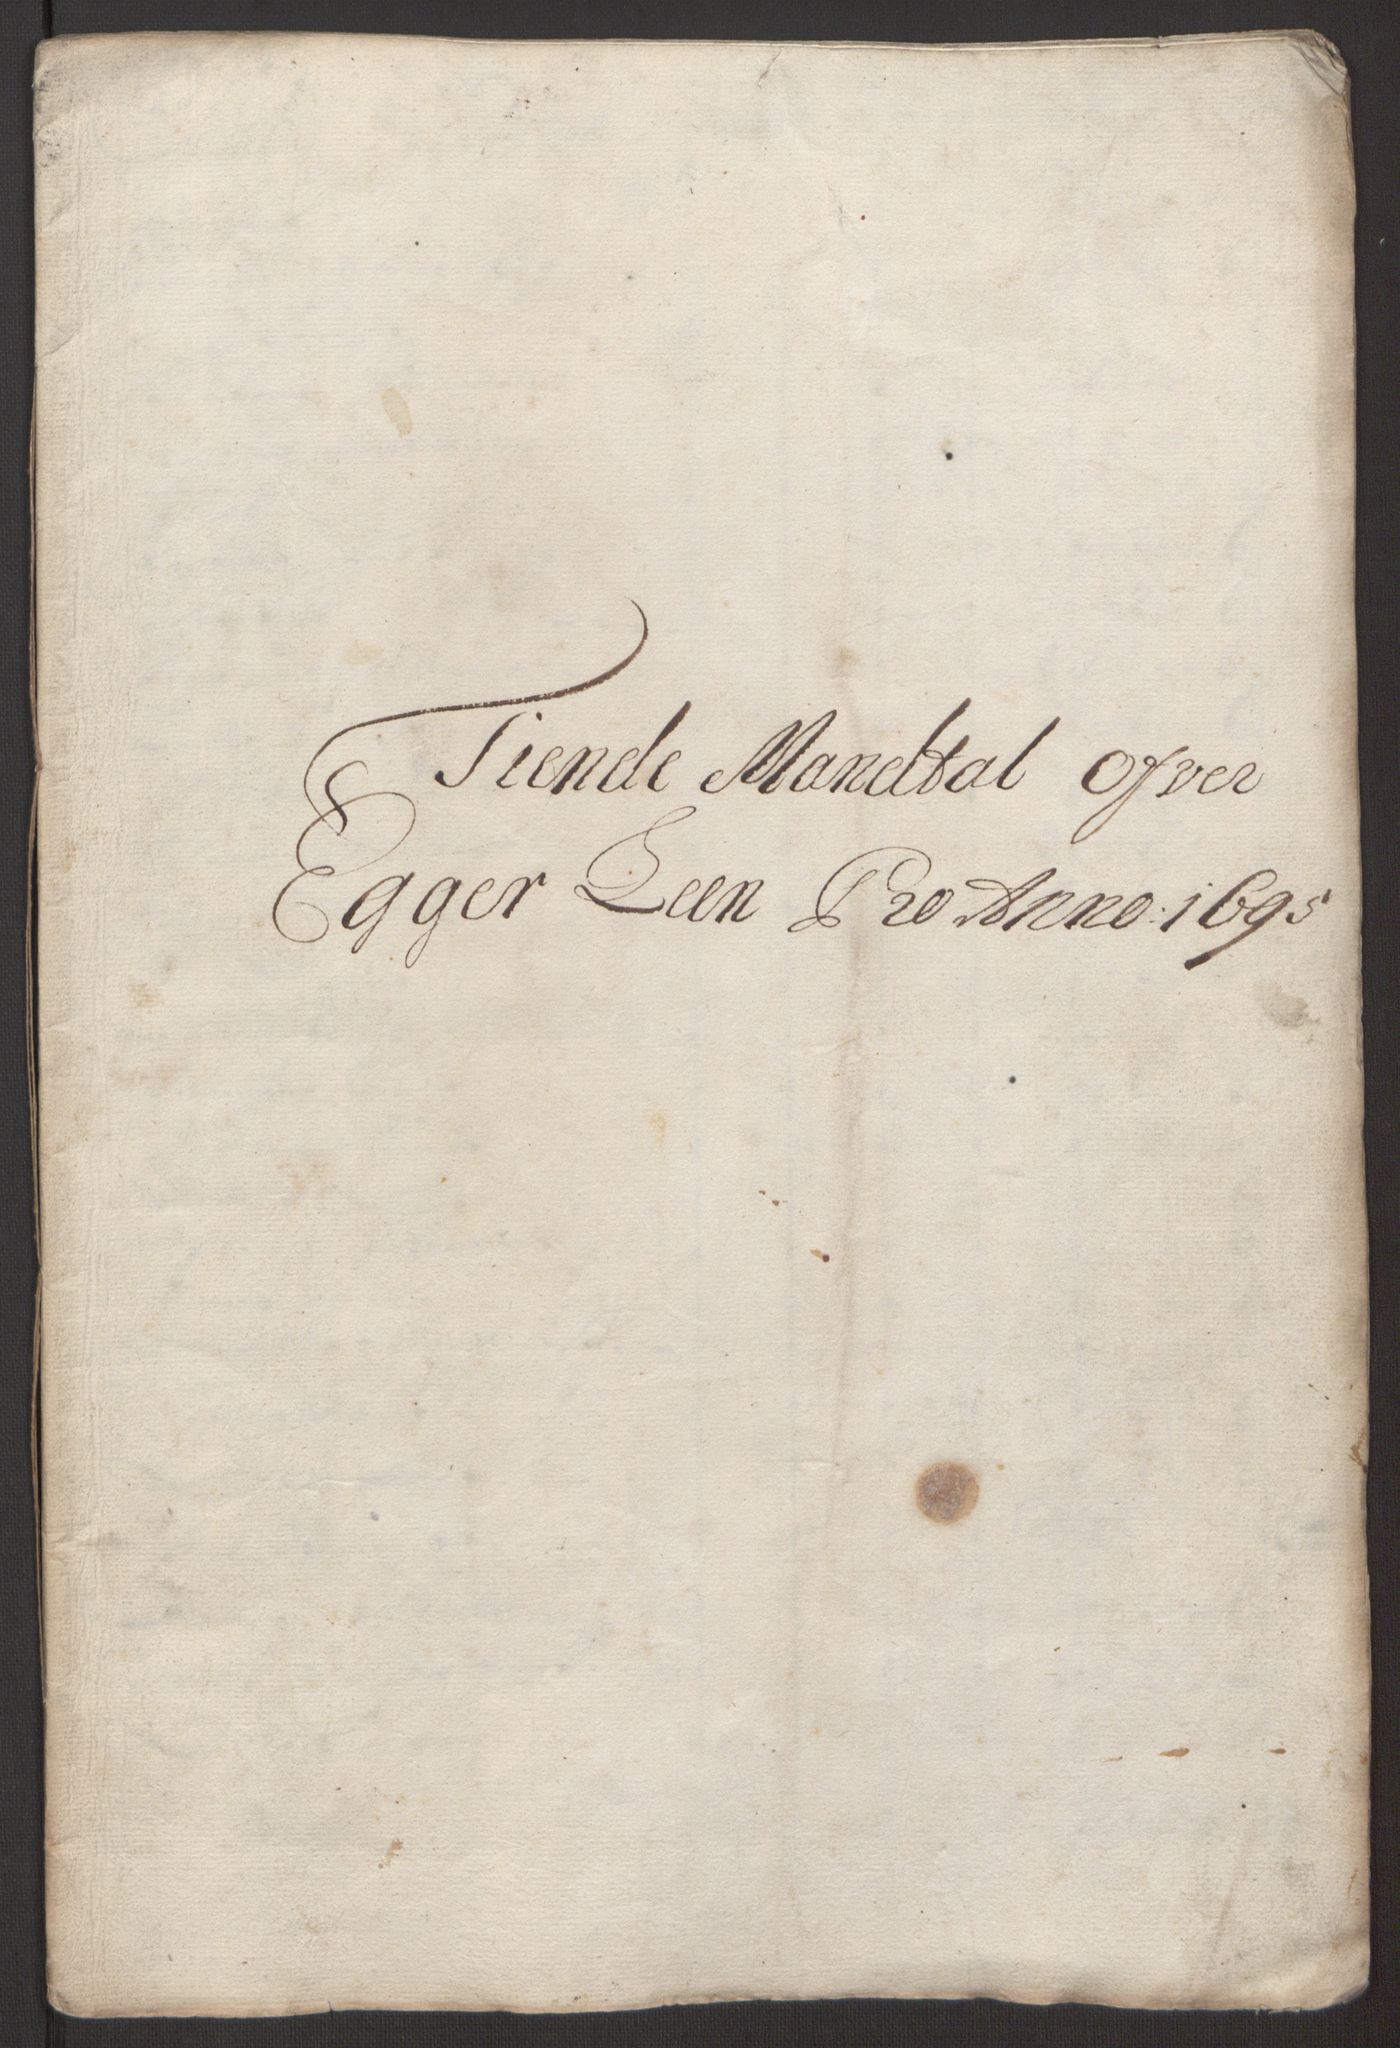 Tiende Mandtal Ofver
Egger Leen Pro Anno: 1695